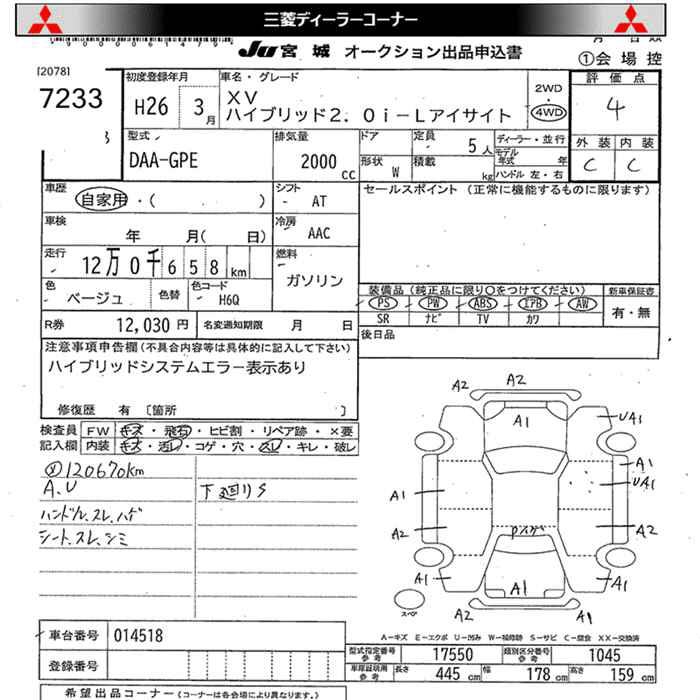 三菱ディーラーコーナー
JU宮城 オークション出品申込書
①会場控
[2078]
7233
初度登録年月
H26 3月
車名・グレード
XV
ハイブリッド2.0i-Lアイサイト
2WD
4WD
評価点
4
型式
DAA-GPE
排気量
2000cc
ドア
形状
W
定員
5人
積載
kg
ディーラー・並行
モデル年式 年
ハンドル 左・右
外装 内装
C C
車歴
自家用・( )
シフト
AT
セールスポイント (正常に機能するものに限ります)
車検
年 月( 日)
冷房
AAC
走行
12万0千658km
燃料
ガソリン
色
ベージュ
色替
色コード
H6Q
装備品(純正品に限り○をつけてください)
新車保証書
PS PW ABS エアB AW
有・無
SR ナビ TV カワ
R券
12,030円
名変通知期限 月 日
後日品
注意事項申告欄(不具合内容等は具体的に記入して下さい)
ハイブリッドシステムエラー表示あり
修復歴 有 〔箇所 〕
検査員 FW キズ・飛石・ヒビ割・リペア跡・×要
記入欄 内装 キズ・汚レ・コゲ・穴・スレ・キレ・破レ
120670km
A.U
下廻りS
ハンドル.スレ.ハゲ
シート.スレ.シミ
A2 A2
A1
UA1
A1
UA1
A1
A2
A2
A1 A1 A1
スペア
A2 A1
車台番号 014518
登録番号
A-キズ E-エクボ U-凹み W-補修跡 S-サビ C-腐食 XX-交換済
型式指定番号 参考 17550 類別区分番号 参考 1045
車庫証明用 参考 長さ 445cm 幅 178cm 高さ 159cm
希望出品コーナー(コーナーは各会場により異なります。)